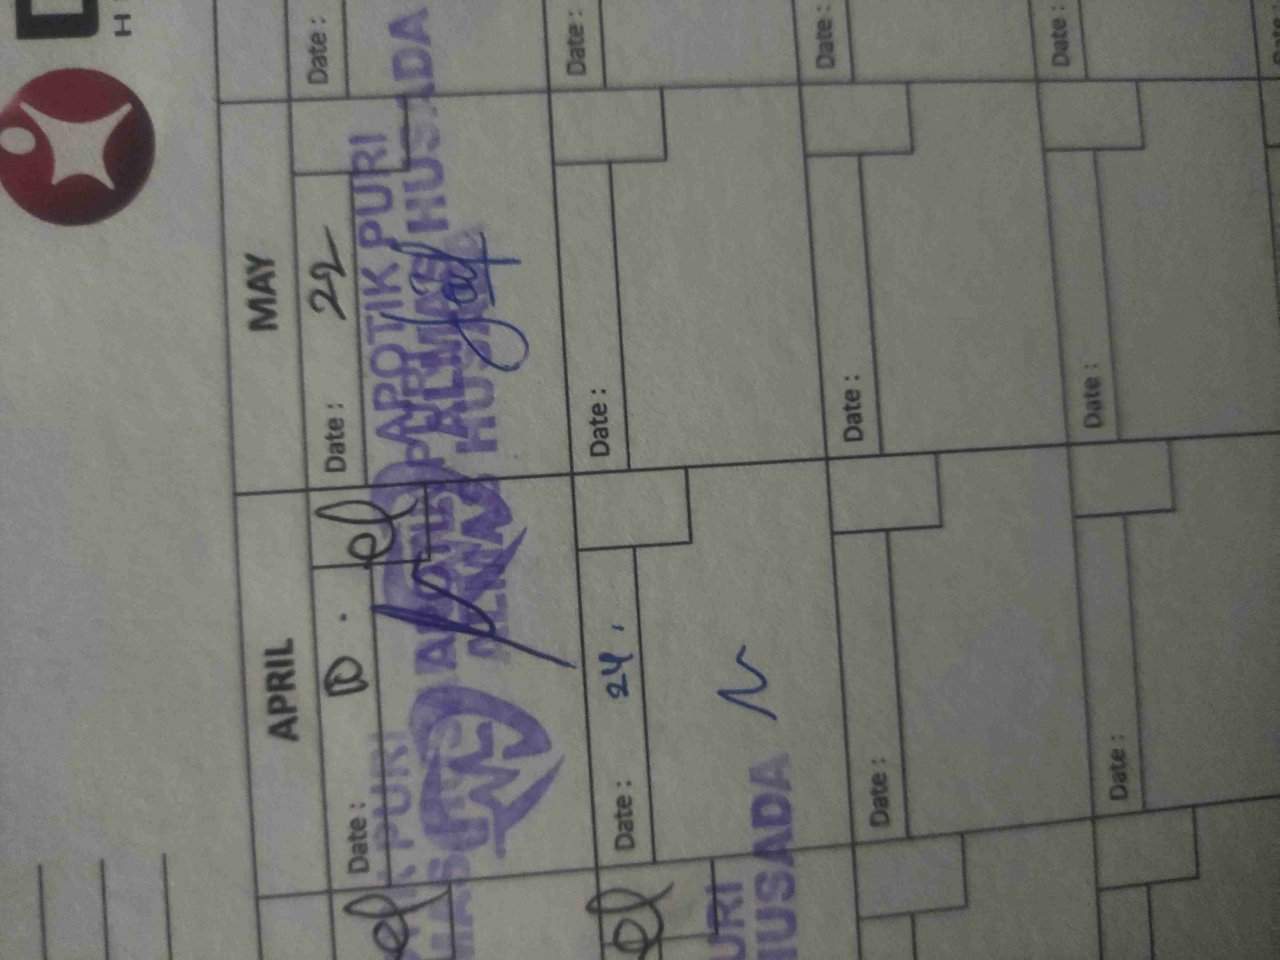 APRIL
MAY
Date :
Date : 22
Date :
APOTIK PURI
ALMAS HUSADA
APOTIK PURI
ALMAS HUSADA
K PURI
MAS
Date : 24
Date :
Date :
URI
HUSADA
Date :
Date :
Date :
Date :
Date :
Date :